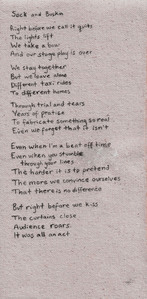 Sock and Buskin
Right before we call it quits
The lights lift
We take a bow
And our stage play is over
We stay together
But we leave alone
Different taxi rides
To different homes
Through trial and tears
Years of practise
To fabricate something so real
Even we forget that it isn't
Even when I'm a beat off time
Even when you stumble
through your lines
The harder it is to pretend
The more we convince ourselves
That there is no difference
But right before we kiss
The curtains close
Audience roars
It was all an act